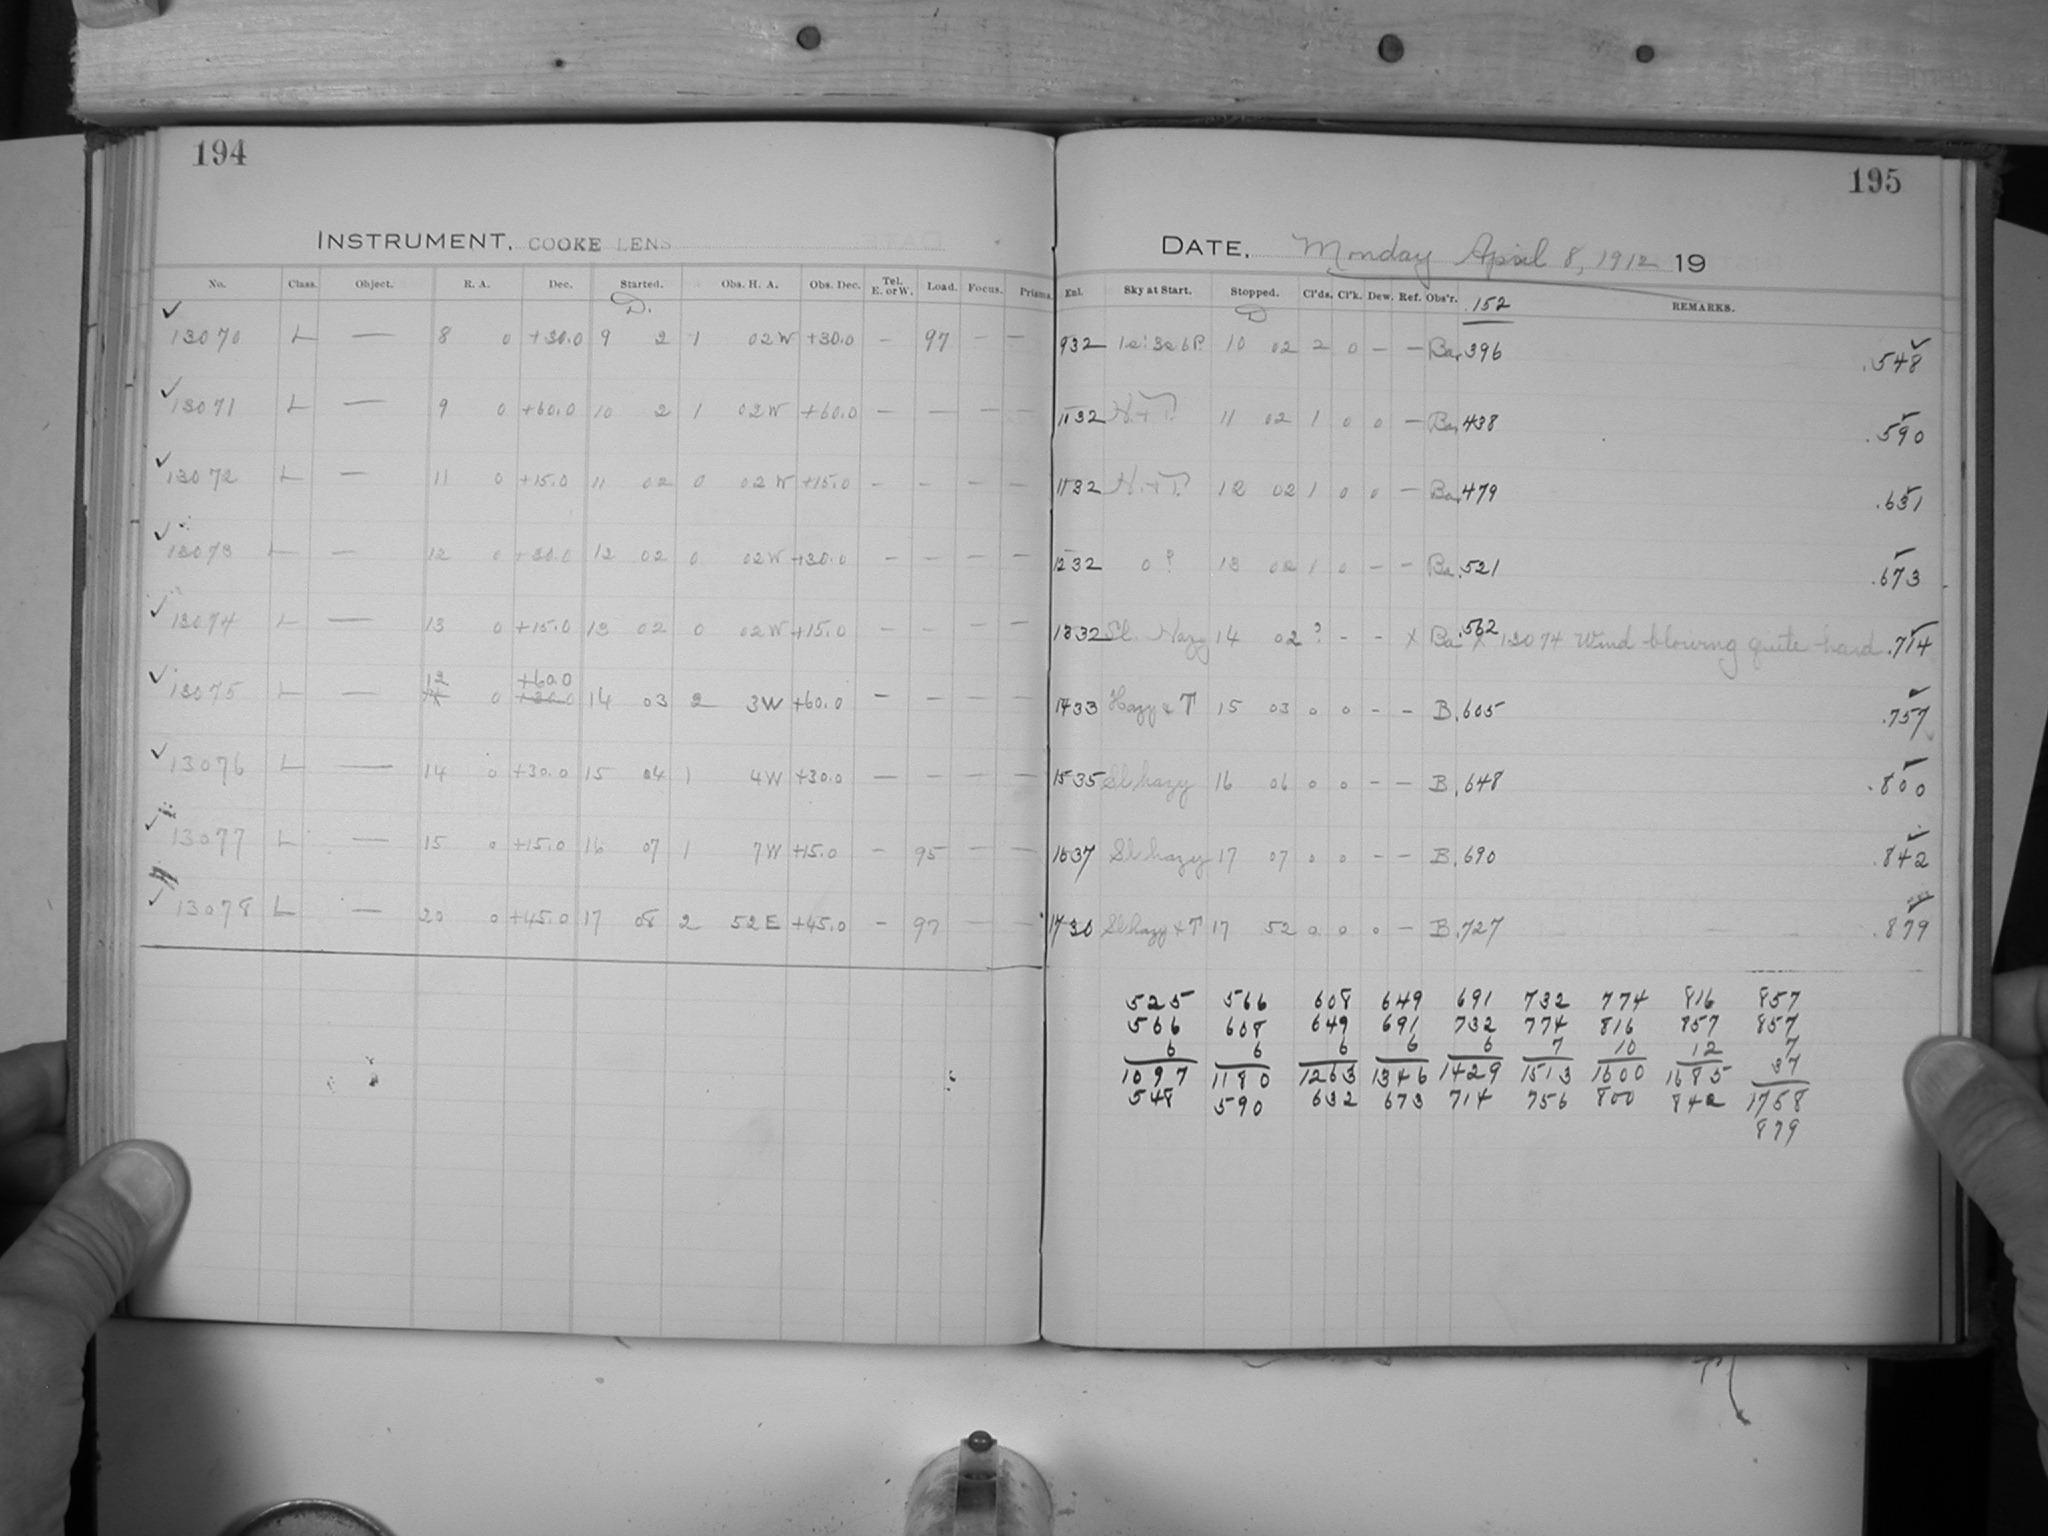 194
INSTRUMENT. COOKE LENS
No. Class. Object. R. A. Dec. Started. Obs. H. A. Obs. Dec. Tel. E. or W. Load. Focus. Prisms.
D.
✓ 13070 L — 8 0 +30.0 9 2 1 02 W +30.0 — 97 — —
✓ 13071 L — 9 0 +60.0 10 2 1 02 W +60.0 — — — —
✓ 13072 L — 11 0 +15.0 11 02 0 02 W +15.0 — — — —
✓ 13073 L — 12 0 +30.0 12 02 0 02 W +30.0 — — — —
✓ 13074 L — 13 0 +15.0 13 02 0 02 W +15.0 — — — —
✓ 13075 L — 12 0 +60.0 14 03 2 3 W +60.0 — — — —
✓ 13076 L — 14 0 +30.0 15 04 1 4 W +30.0 — — — —
✓ 13077 L — 15 0 +15.0 16 07 1 7 W +15.0 — 95 — —
✓ 13078 L — 20 0 +45.0 17 08 2 52 E +45.0 — 97 — —
195
DATE. Monday April 8, 1912 19
Enl. Sky at Start. Stopped. Cl'ds. Cl'k. Dew. Ref. Obs'r. .152 REMARKS.
D
932 10 02 2 0 — — Ba .396 .548
1032 H. + T. 11 02 1 0 0 — Ba .438 .590
1132 H. + T. 12 02 1 0 0 — Ba .479 .631
1232 0? 13 02 1 0 — — Ba .521 .673
1332 Sl. Hazy 14 02 ? — — X Ba .562 X 13074 Wind blowing quite hard .714
1433 Hazy & T 15 03 0 0 — — B .605 .757
1535 Sl hazy 16 06 0 0 — — B .648 .800
1637 Sl hazy 17 07 0 0 — — B .690 .842
1730 Sl hazy + T 17 52 0 0 0 — B .727 .879
525 566 608 649 691 732 774 816 857
566 608 649 691 732 774 816 857 857
6 6 6 6 6 7 10 12 7
37
1097 1180 1263 1346 1429 1513 1600 1685 1758
548 590 632 673 714 756 800 842 879